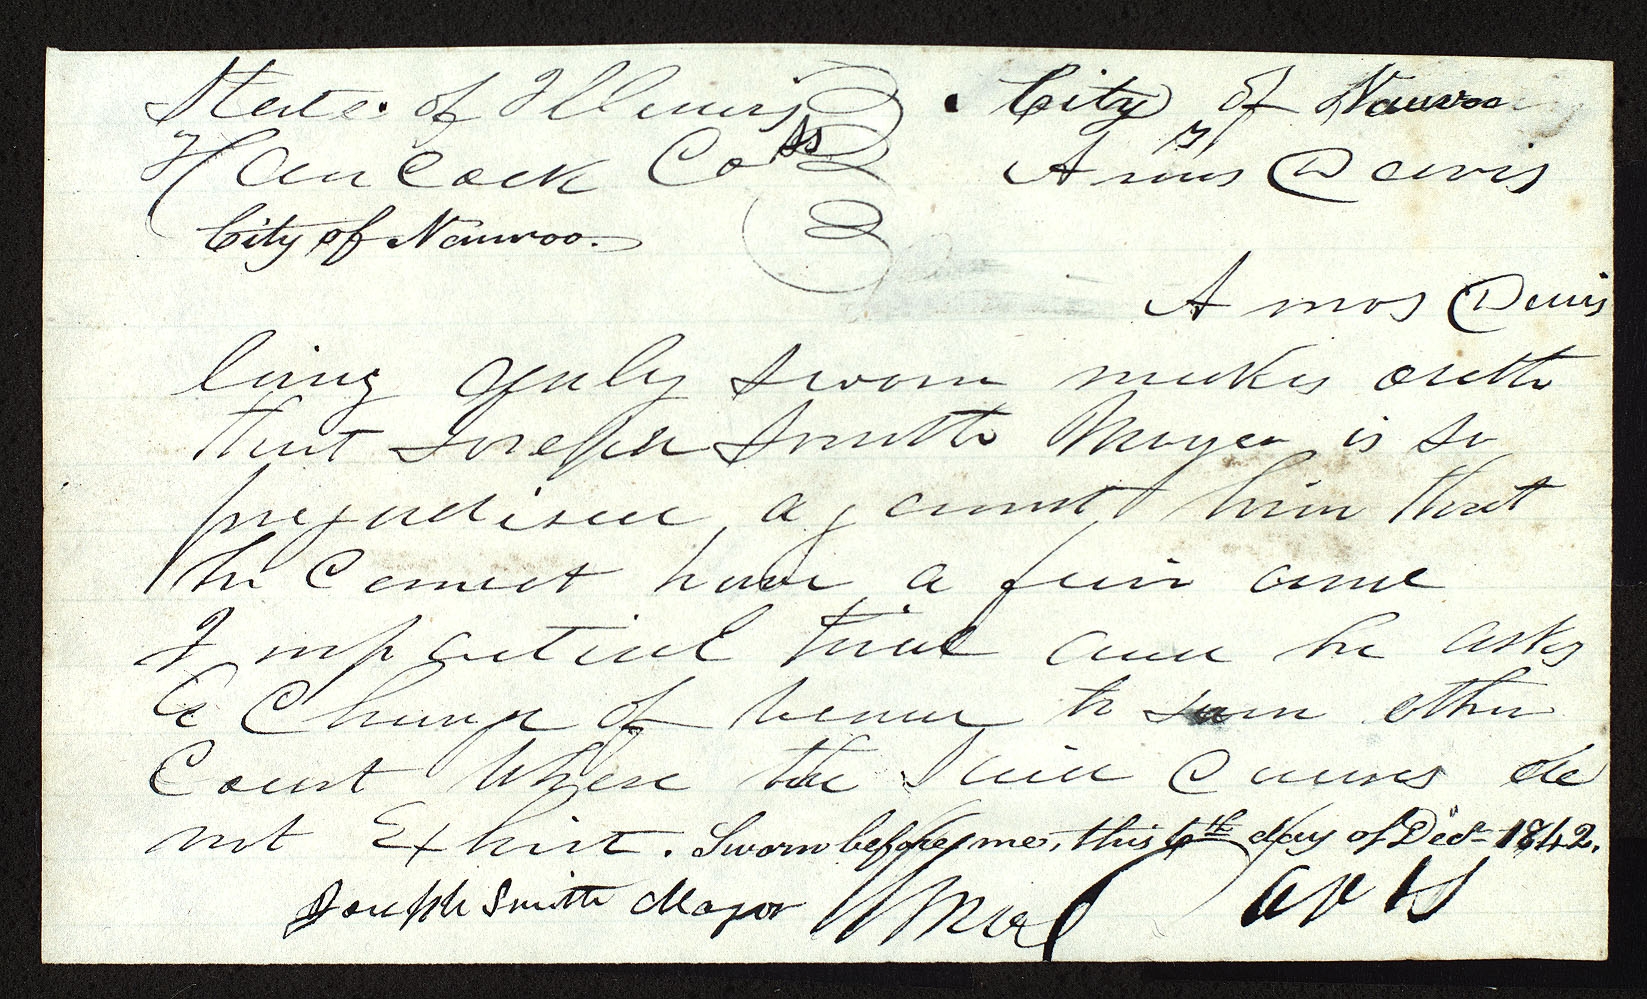 State of Illinois City of Nauvoo
Hancock Co ss vs Amos Davis
City of Nauvoo.
Amos Davis
being duly sworn makes oath
that Joseph Smith Mayor is so
prejudised against him that
he cannot have a fair and
Impartial trial and he asks
a Change of venue to some other
Court Where the said Causes do
not Exhist. Sworn before me, this 6th day of Decr 1842.
Joseph Smith Mayor Amos Davis